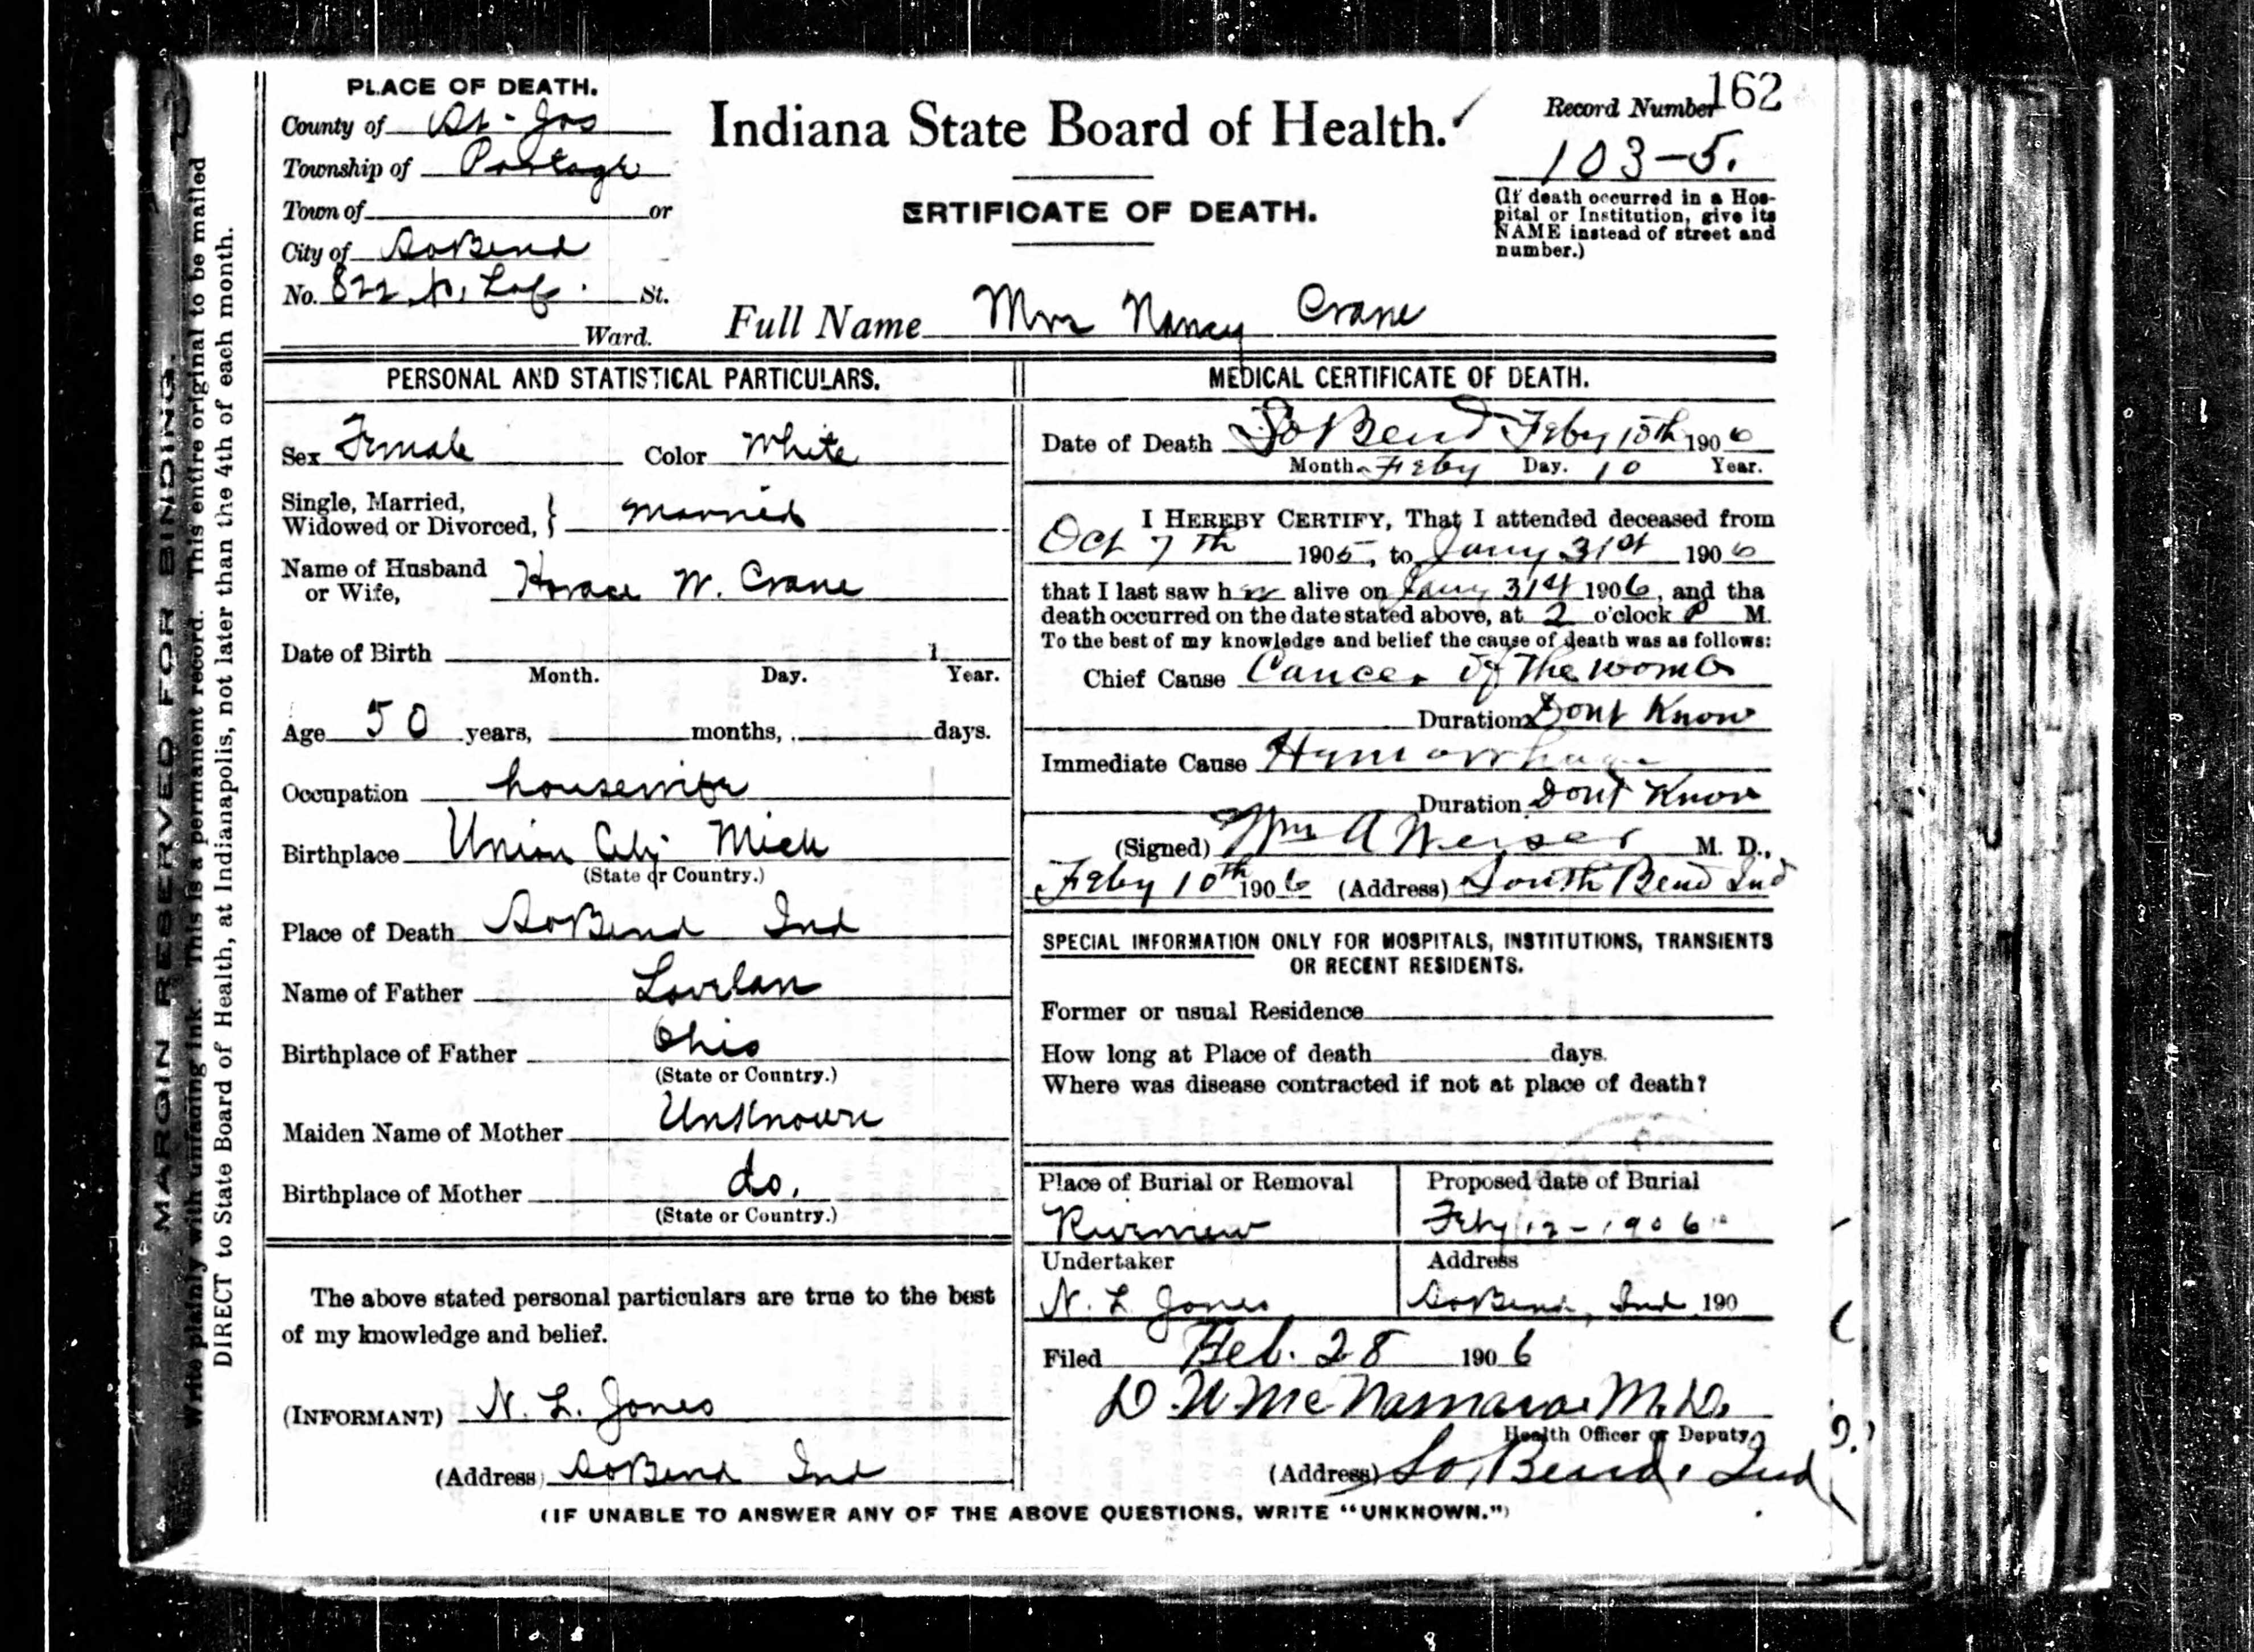 PLACE OF DEATH.
County of St. Jos
Township of Portage
Town of or
City of So Bend
No. 822 N. Laf. St.
Ward.
Indiana State Board of Health.
ERTIFICATE OF DEATH.
Record Number 162
103-5.
(If death occurred in a Hos-
pital or Institution, give its
NAME instead of street and
number.)
Full Name Mrs Nancy Crane
MARGIN RESERVED FOR BINDING.
Write plainly with unfading ink. This is a permanent record. This entire original to be mailed
DIRECT to State Board of Health, at Indianapolis, not later than the 4th of each month.
PERSONAL AND STATISTICAL PARTICULARS.
Sex Female Color White
Single, Married,
Widowed or Divorced, } Married
Name of Husband
or Wife, Horace W. Crane
Date of Birth 1
Month. Day. Year.
Age 50 years, months, days.
Occupation housewife
Birthplace Union City Mich
(State or Country.)
Place of Death So Bend Ind
Name of Father Lovelan
Birthplace of Father Ohio
(State or Country.)
Maiden Name of Mother Unknown
Birthplace of Mother do.
(State or Country.)
The above stated personal particulars are true to the best
of my knowledge and belief.
(INFORMANT) N. L. Jones
(Address) So Bend Ind
MEDICAL CERTIFICATE OF DEATH.
Date of Death So Bend Feby 10th 1906
Month Feby Day. 10 Year.
I HEREBY CERTIFY, That I attended deceased from
Oct 7th 1905, to Jany 31st 1906
that I last saw her alive on Jany 31st 1906, and tha
death occurred on the date stated above, at 2 o'clock P M.
To the best of my knowledge and belief the cause of death was as follows:
Chief Cause Cancer of the womb
Duration Dont Know
Immediate Cause Hemorrhage
Duration Dont Know
(Signed) Wm A Neiser M. D.,
Feby 10th 1906 (Address) South Bend Ind
SPECIAL INFORMATION ONLY FOR HOSPITALS, INSTITUTIONS, TRANSIENTS
OR RECENT RESIDENTS.
Former or usual Residence
How long at Place of death days.
Where was disease contracted if not at place of death?
Place of Burial or Removal
Riverview
Proposed date of Burial
Feby 12-1906
Undertaker
N. L. Jones
Address
So Bend, Ind 190
Filed Feb. 28 1906
D. W. McNamara M.D.
Health Officer or Deputy
(Address) So. Bend, Ind
(IF UNABLE TO ANSWER ANY OF THE ABOVE QUESTIONS, WRITE "UNKNOWN.")